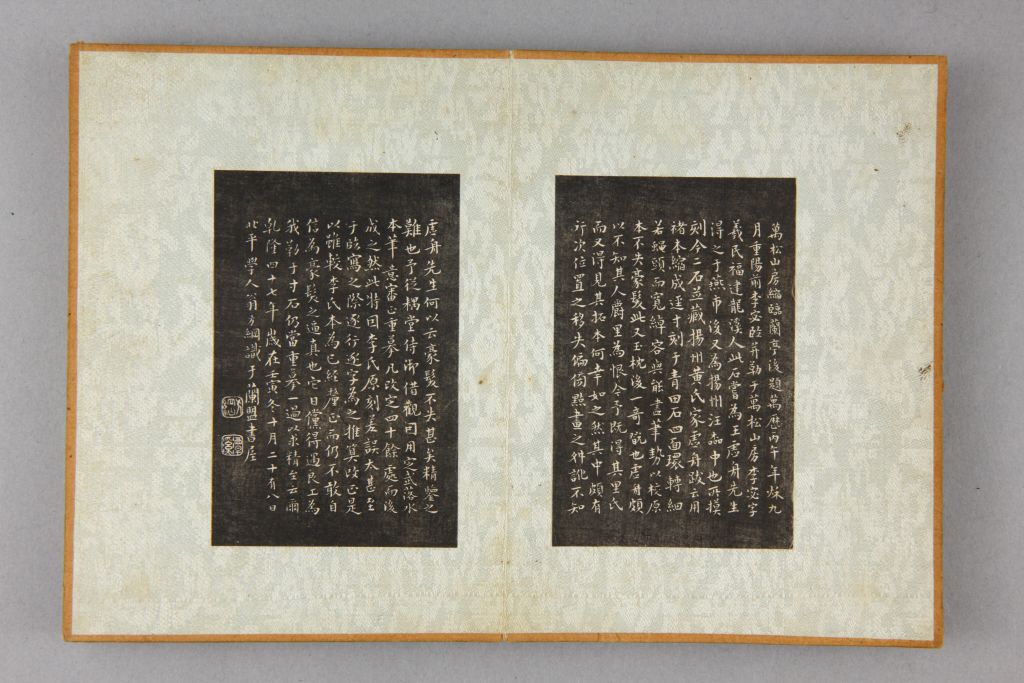 萬松山房縮臨蘭亭後題萬歷丙午年秋九
月重陽前李宓臨并勒于萬松山房李宓字
羲民福建龍溪人此石嘗為王虛舟先生
得之于燕市後又為揚州汪
刻今二石並藏揚州黃氏家虛舟跋云用
褚本縮成逕寸刻于青田石四面環轉細
若蠅頭而寬綽容與能盡筆勢以校原
本不失豪髮此又玉枕後一奇觀也虛舟頗
以不知其人爵里為恨今予既得其里氏
而又得見其拓本何幸如之然其中頗有
行次位置之移失偏向點畫之件訛不知
虛舟先生何以云豪髮不失甚矣精鑒之
難也予從耦堂侍御借觀因用定武落水
本筆意審正重摹凡改定四十餘處而後
成之然此特因李氏原刻差誤太甚至
于臨寫之際逐行逐字為之推算改正是
以雖較李氏本為已經釐正仍不敢自
信為豪髮之逼真也它日儻得遇良工為
我勒于寸石仍當重摹一過以求精至云爾
乾隆四十七年歲在壬寅冬十月二十有八日
北平學人翁方綱識于蘭盟書屋